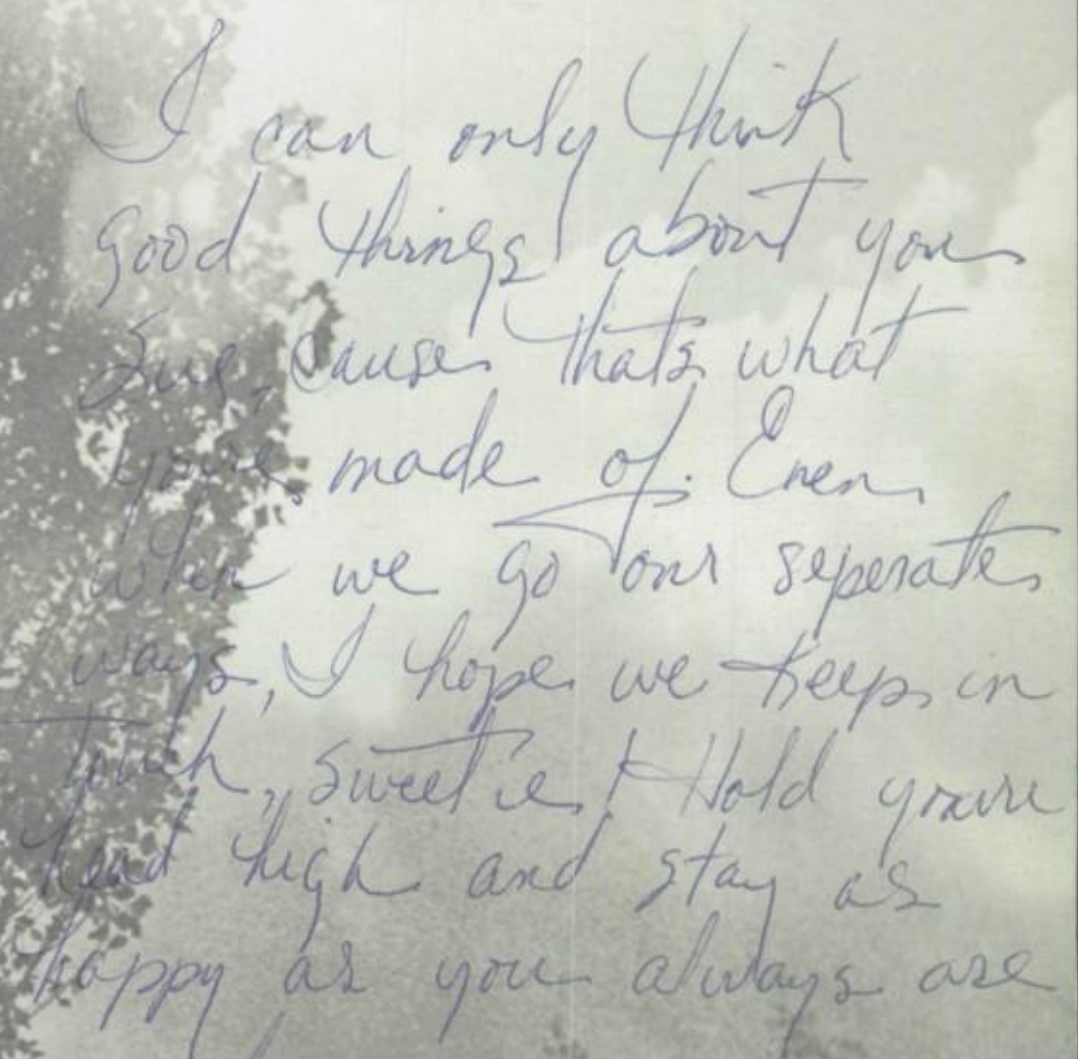 I can only think
good things about you
Sue, cause thats what
you're made of. Even
when we go our seperate
ways, I hope we keep in
touch, sweetie! Hold youre
head high and stay as
happy as you always are